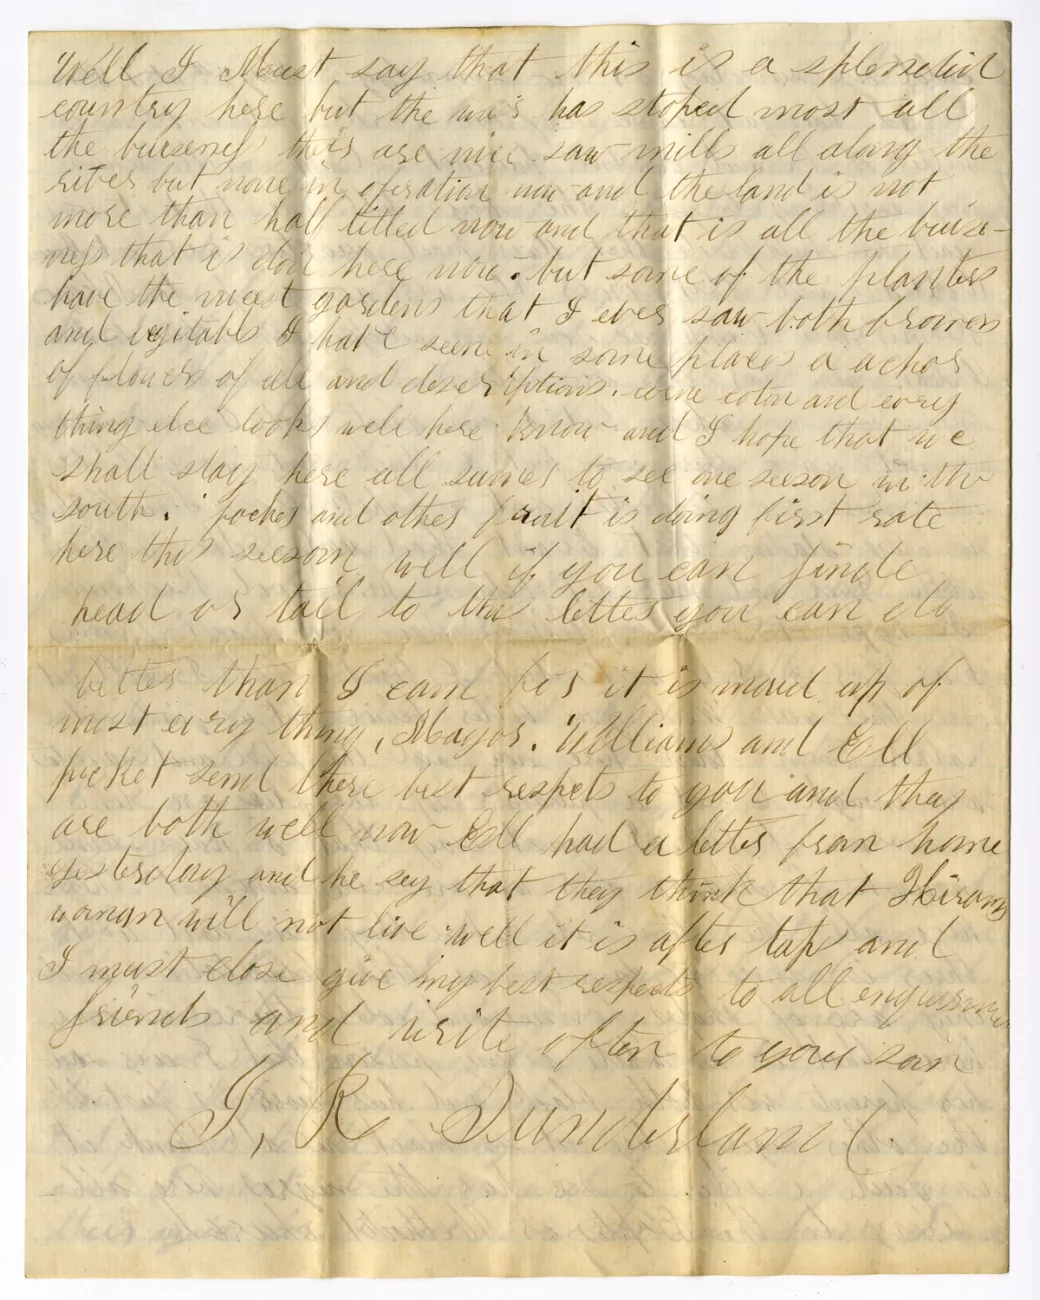 Well I Must say that this is a splendid
country here but the war has stoped most all
the buisness this are nice saw mills all along the
river but none in operation now and the land is not
more than half tilled now and that is all the buis-
ness that is doin here now. but some of the planters
have the nicest gardens that I ever saw both
and vegitabls I have seene in some places a
of flowers of all and descriptions. corne coton and evry
thing elce looks well here know and I hope that we
shall stay here all sumer to see one seeson in the
south. peches and other fruit is doing first rate
here this seeson well if you can finde
head or tail to this letter you can do
better than I can for it is maid up of
most evry thing, Mayor. Williams and Ell
pucket send there best respets to you and thay
are both well now Ell had a letter from home
yesterday and he say that they think that Hirams
woman will not live well it is after taps and
I must close give my best respects to all
friends and write often to your son
J, R Sunderland